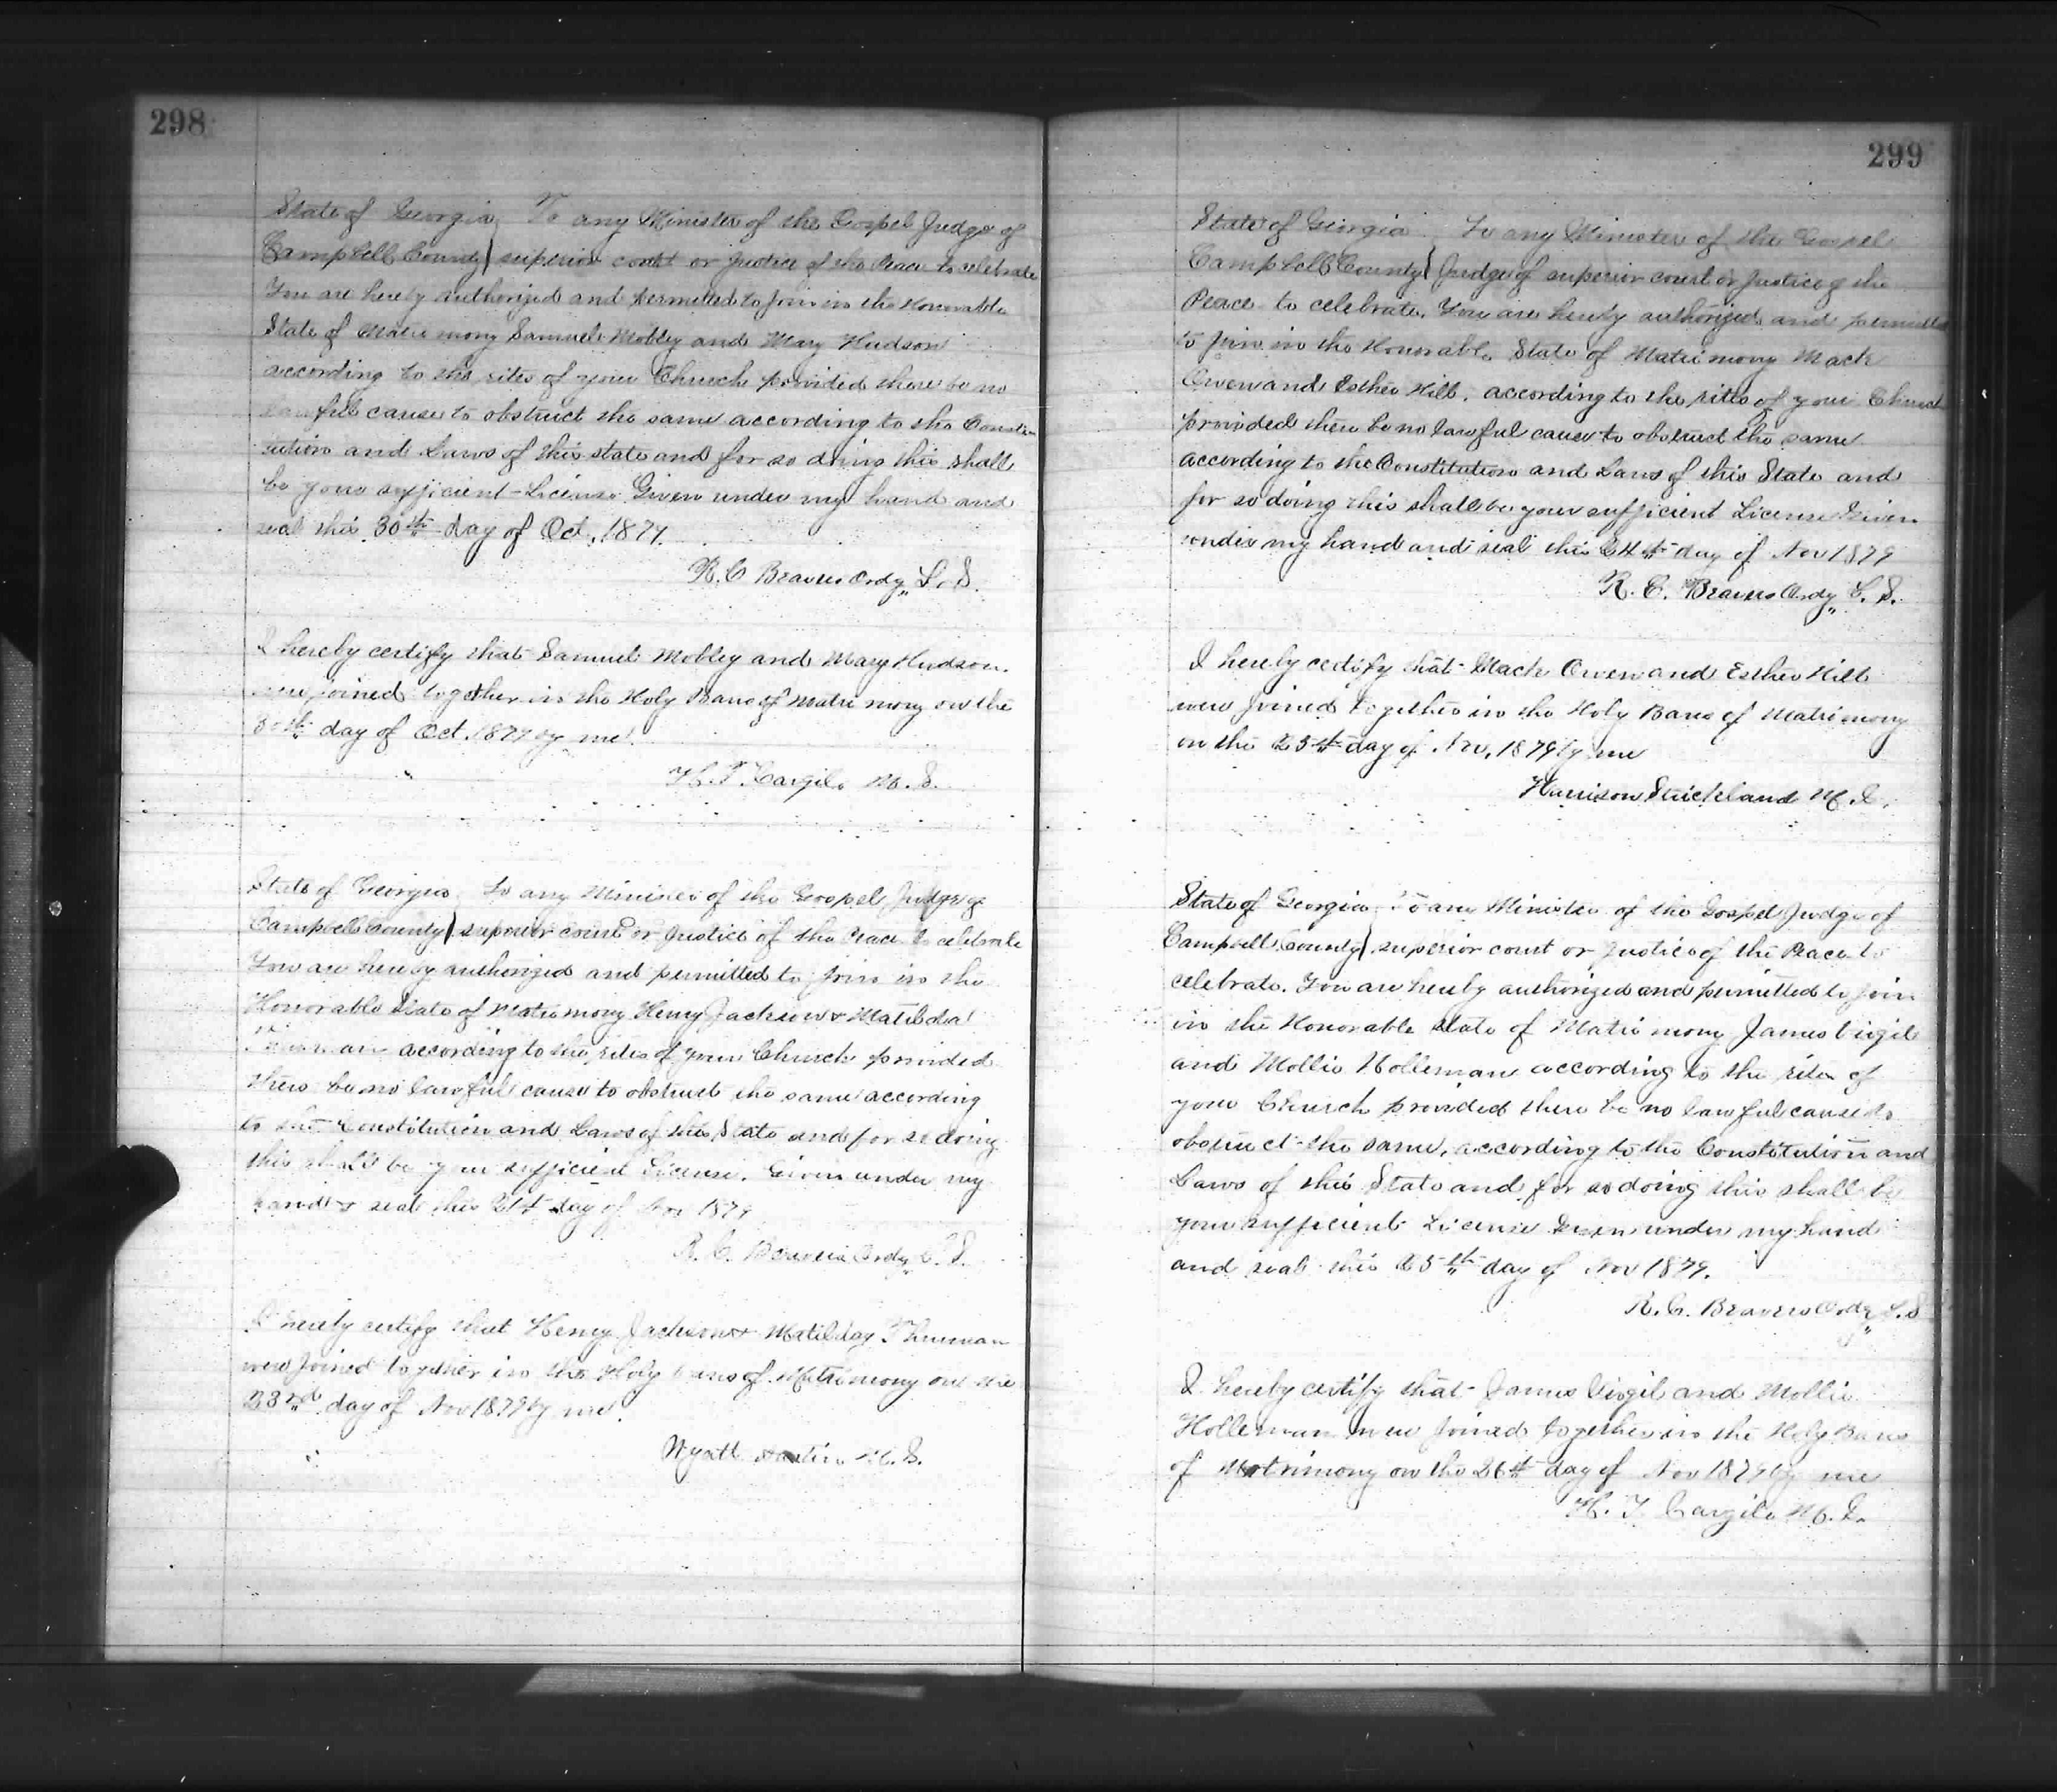 298
State of Georgia To any Minister of the Gospel Judge of
Campbell County } superior court or Justice of the Peace to celebrate
You are hereby authorized and permitted to join in the Honorable
State of Matrimony Samuel Mobley and Mary Hudson
according to the rites of your Church provided there be no
lawful cause to obstruct the same according to the Consti-
tution and Laws of this state and for so doing this shall
be your sufficient License Given under my hand and
seal this 30th day of Oct, 1879.
R. C. Beavers Ordy L. S.
I hereby certify that Samuel Mobley and Mary Hudson
were joined together in the Holy Bans of Matrimony on the
30th day of Oct 1879 by me
H. T. Cargile M. G.
State of Georgia To any Minister of the Gospel Judge of
Campbell County } superior court or Justice of the Peace to celebrate
You are hereby authorized and permitted to join in the
Honorable State of Matrimony Henry Jackson & Matilda
Thurman according to the rites of your Church provided
there be no lawful cause to obstruct the same according
to the Constitution and Laws of this State and for so doing
this shall be your sufficient License. Given under my
hand & seal this 21st day of Nov 1879
R. C. Beavers Ordy L. S.
I hereby certify that Henry Jackson & Matilday Thurman
were joined together in the Holy bans of Matrimony on the
23rd day of Nov 1879 by me
Wyatt M. G.
299
State of Georgia To any Minister of the Gospel
Campbell County } Judge of superior court or Justice of the
Peace to celebrate. You are hereby authorized and permitted
to join in the Honorable State of Matrimony Mack
Owen and Esther Hill. according to the rites of your Church
provided there be no lawful cause to obstruct the same
according to the Constitution and Laws of this State and
for so doing this shall be your sufficient License Given
under my hand and seal this 24th day of Nov 1879
R. C. Beavers Ordy L. S.
I hereby certify that Mack Owen and Esther Hill
were joined together in the Holy Bans of Matrimony
on the 25th day of Nov, 1879 by me
Harrison Strickland M. G.
State of Georgia To any Minister of the Gospel Judge of
Campbell County } superior court or Justice of the Peace to
celebrate. You are hereby authorized and permitted to join
in the Honorable state of Matrimony James Virgil
and Mollie Holleman according to the rites of
your Church provided there be no lawful cause to
obstruct the same, according to the Constitution and
Laws of this State and for so doing this shall be
your sufficient License Given under my hand
and seal this 25th day of Nov 1879.
R. C. Beavers Ordy L. S
I hereby certify that James Virgil and Mollie
Holleman were joined together in the Holy Bans
of Matrimony on the 26th day of Nov 1879 by me
H. T. Cargile M. G.